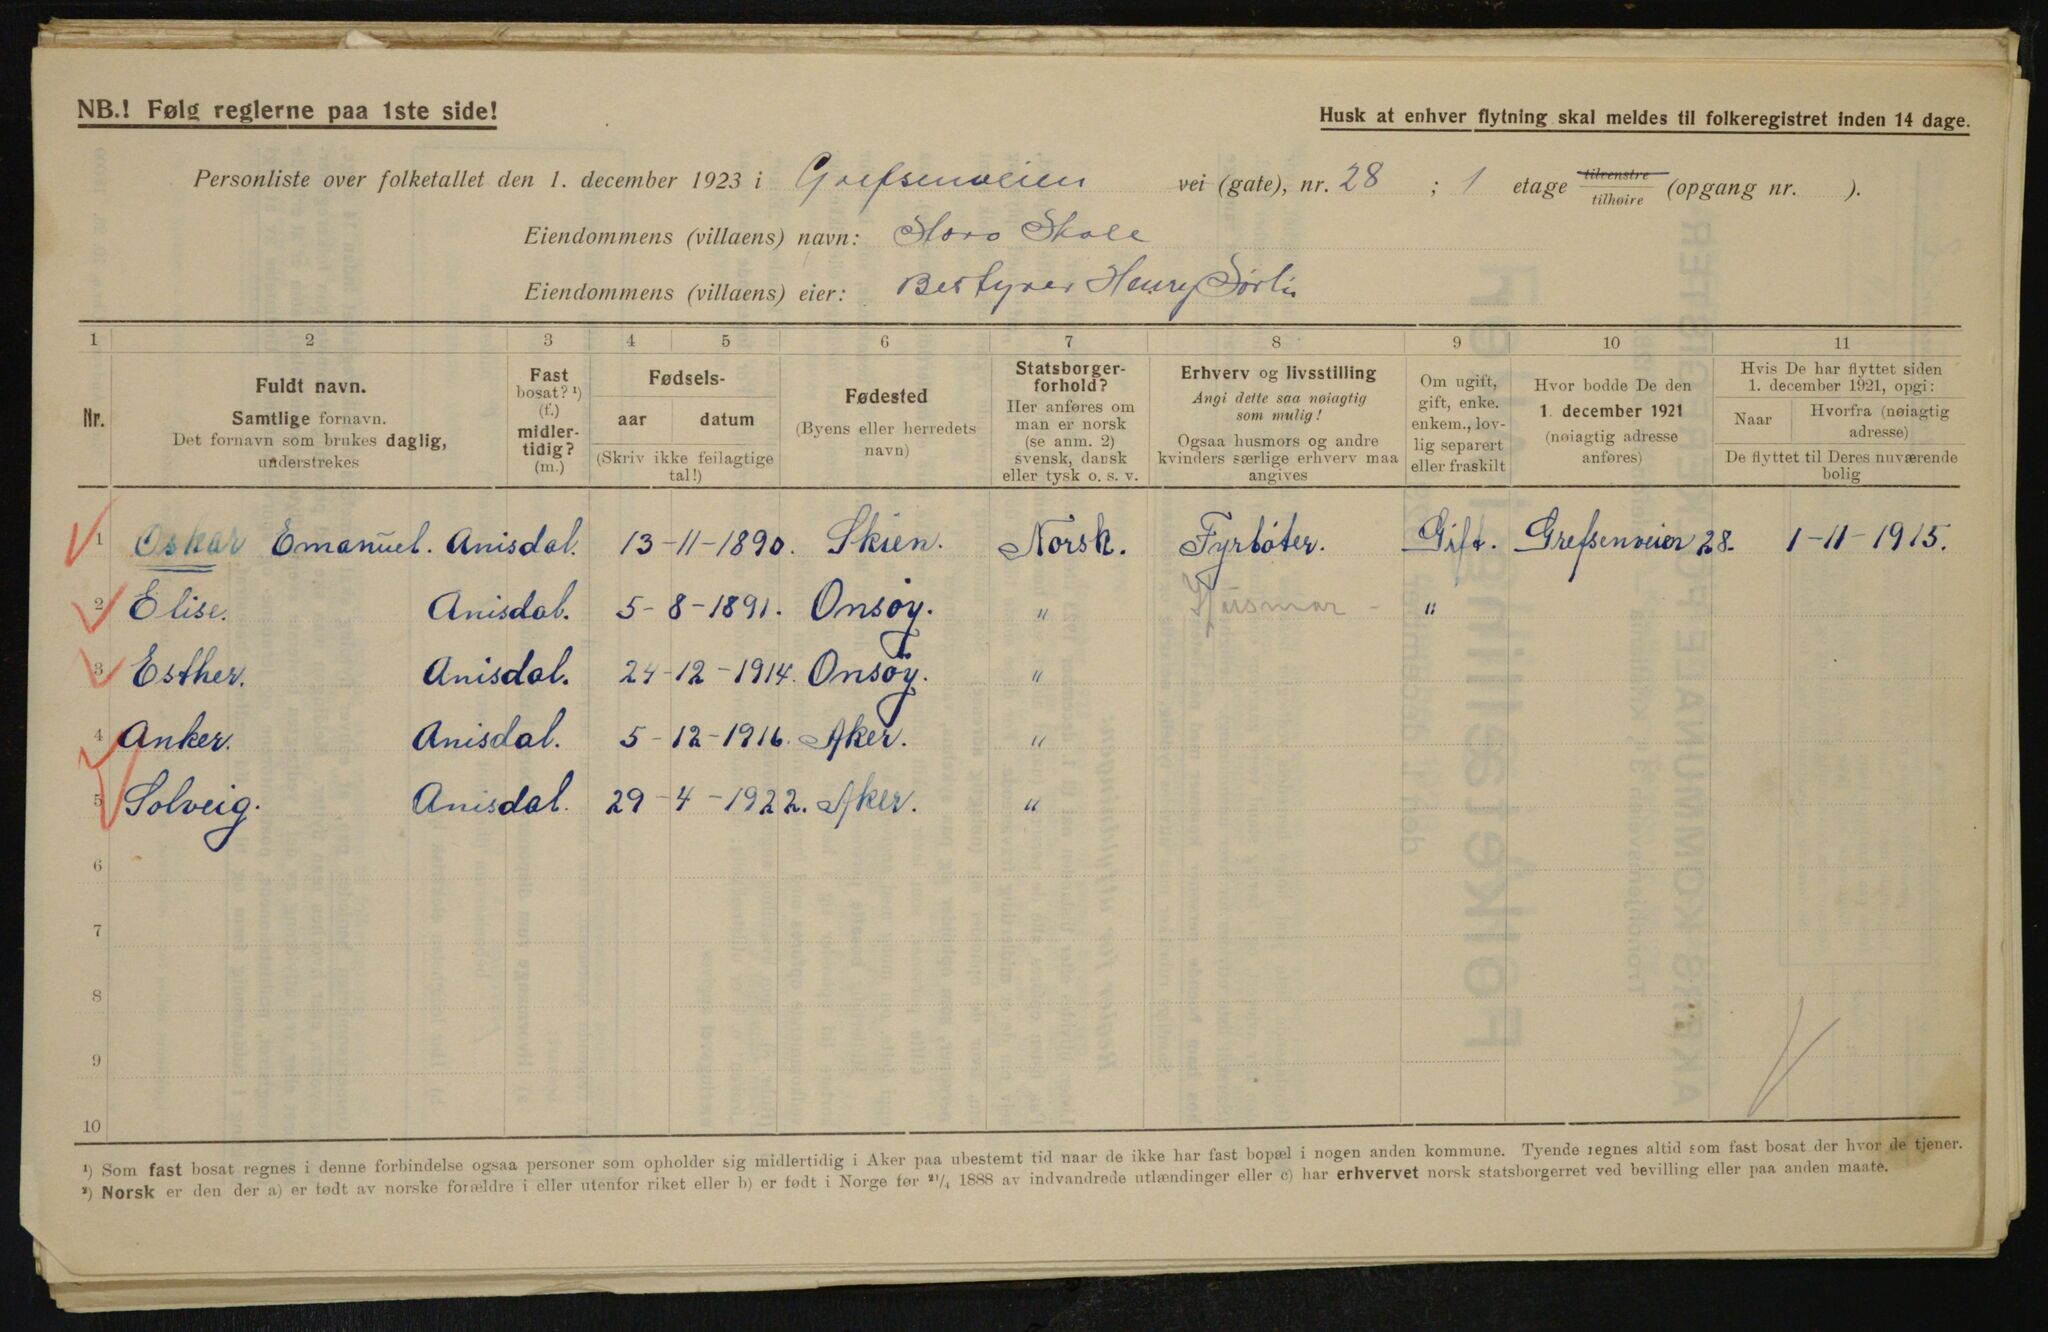 NB.! Følg reglerne paa 1ste side!
Husk at enhver flytning skal meldes til folkeregistret inden 14 dage.
Personliste over folketallet den 1. december 1923 i Grefsenveien vei (gate), nr. 28 ; 1 etage tilvenstre/tilhøire (opgang nr. ).
Eiendommens (villaens) navn: Storo Skole
Eiendommens (villaens) eier: Bestyrer Henry Sørli
1 2 3 4 5 6 7 8 9 10 11
Nr.
Fuldt navn.
Samtlige fornavn.
Det fornavn som brukes daglig,
understrekes
Fast
bosat? ¹)
(f.)
midler-
tidig?
(m.)
Fødsels-
aar datum
(Skriv ikke feilagtige
tal!)
Fødested
(Byens eller herredets
navn)
Statsborger-
forhold?
Her anføres om
man er norsk
(se anm. 2)
svensk, dansk
eller tysk o. s. v.
Erhverv og livsstilling
Angi dette saa nøiagtig
som mulig!
Ogsaa husmors og andre
kvinders særlige erhverv maa
angives
Om ugift,
gift, enke.
enkem., lov-
lig separert
eller fraskilt
Hvor bodde De den
1. december 1921
(nøiagtig adresse
anføres)
Hvis De har flyttet siden
1. december 1921, opgi:
Naar Hvorfra (nøiagtig
adresse)
De flyttet til Deres nuværende
bolig
1 Oskar Emanuel. Anisdal. 13-11-1890. Skien. Norsk. Fyrbøter. Gift. Grefsenveien 28. 1-11-1915.
2 Elise. Anisdal. 5-8-1891. Onsøy. " Husmor - "
3 Esther. Anisdal. 24-12-1914. Onsøy. "
4 Anker. Anisdal. 5-12-1916. Aker. "
5 Solveig. Anisdal. 29-4-1922. Aker. "
6
7
8
9
10
¹) Som fast bosat regnes i denne forbindelse ogsaa personer som opholder sig midlertidig i Aker paa ubestemt tid naar de ikke har fast bopæl i nogen anden kommune. Tyende regnes altid som fast bosat der hvor de tjener.
²) Norsk er den der a) er født av norske forældre i eller utenfor riket eller b) er født i Norge før ²¹/₄ 1888 av indvandrede utlændinger eller c) har erhvervet norsk statsborgerret ved bevilling eller paa anden maate.